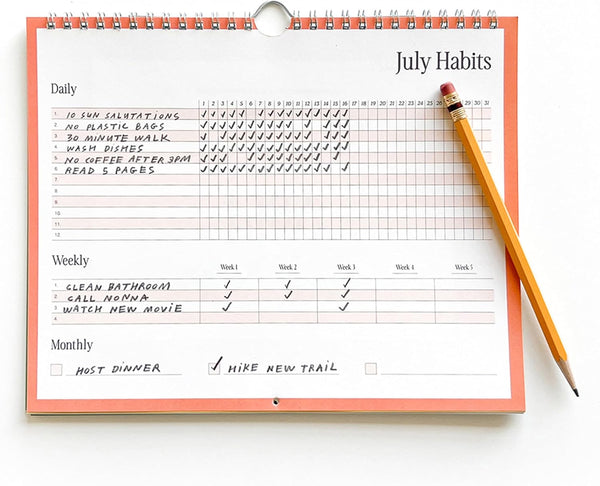 July Habits
Daily
1 2 3 4 5 6 7 8 9 10 11 12 13 14 15 16 17 18 19 20 21 22 23 24 25 26 27 28 29 30 31
1. 10 SUN SALUTATIONS
2. NO PLASTIC BAGS
3. 30 MINUTE WALK
4. WASH DISHES
5. NO COFFEE AFTER 3PM
6. READ 5 PAGES
7.
8.
9.
10.
11.
12.
Weekly
Week 1 Week 2 Week 3 Week 4 Week 5
1. CLEAN BATHROOM
2. CALL NONNA
3. WATCH NEW MOVIE
4.
Monthly
HOST DINNER HIKE NEW TRAIL